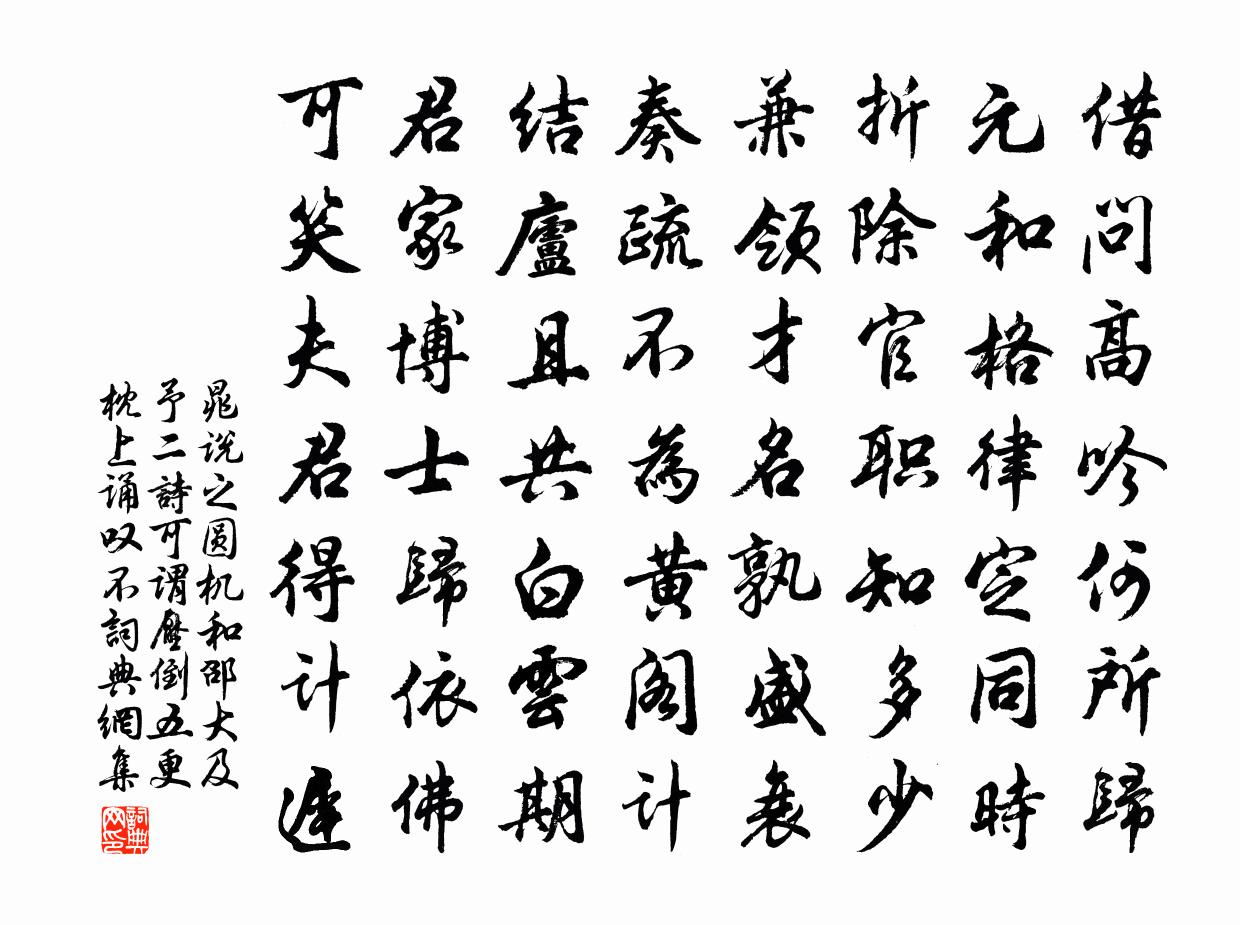 借问高吟何所歸
元和格律定同時
折除官职知多少
兼领才名孰盛衰
奏疏不為黄阁计
结廬且共白雲期
君家博士歸依佛
可笑夫君得计遲
晁说之圆机和邵大及
予二詩可谓壓倒五更
枕上诵叹不詞典網集
詞典网印